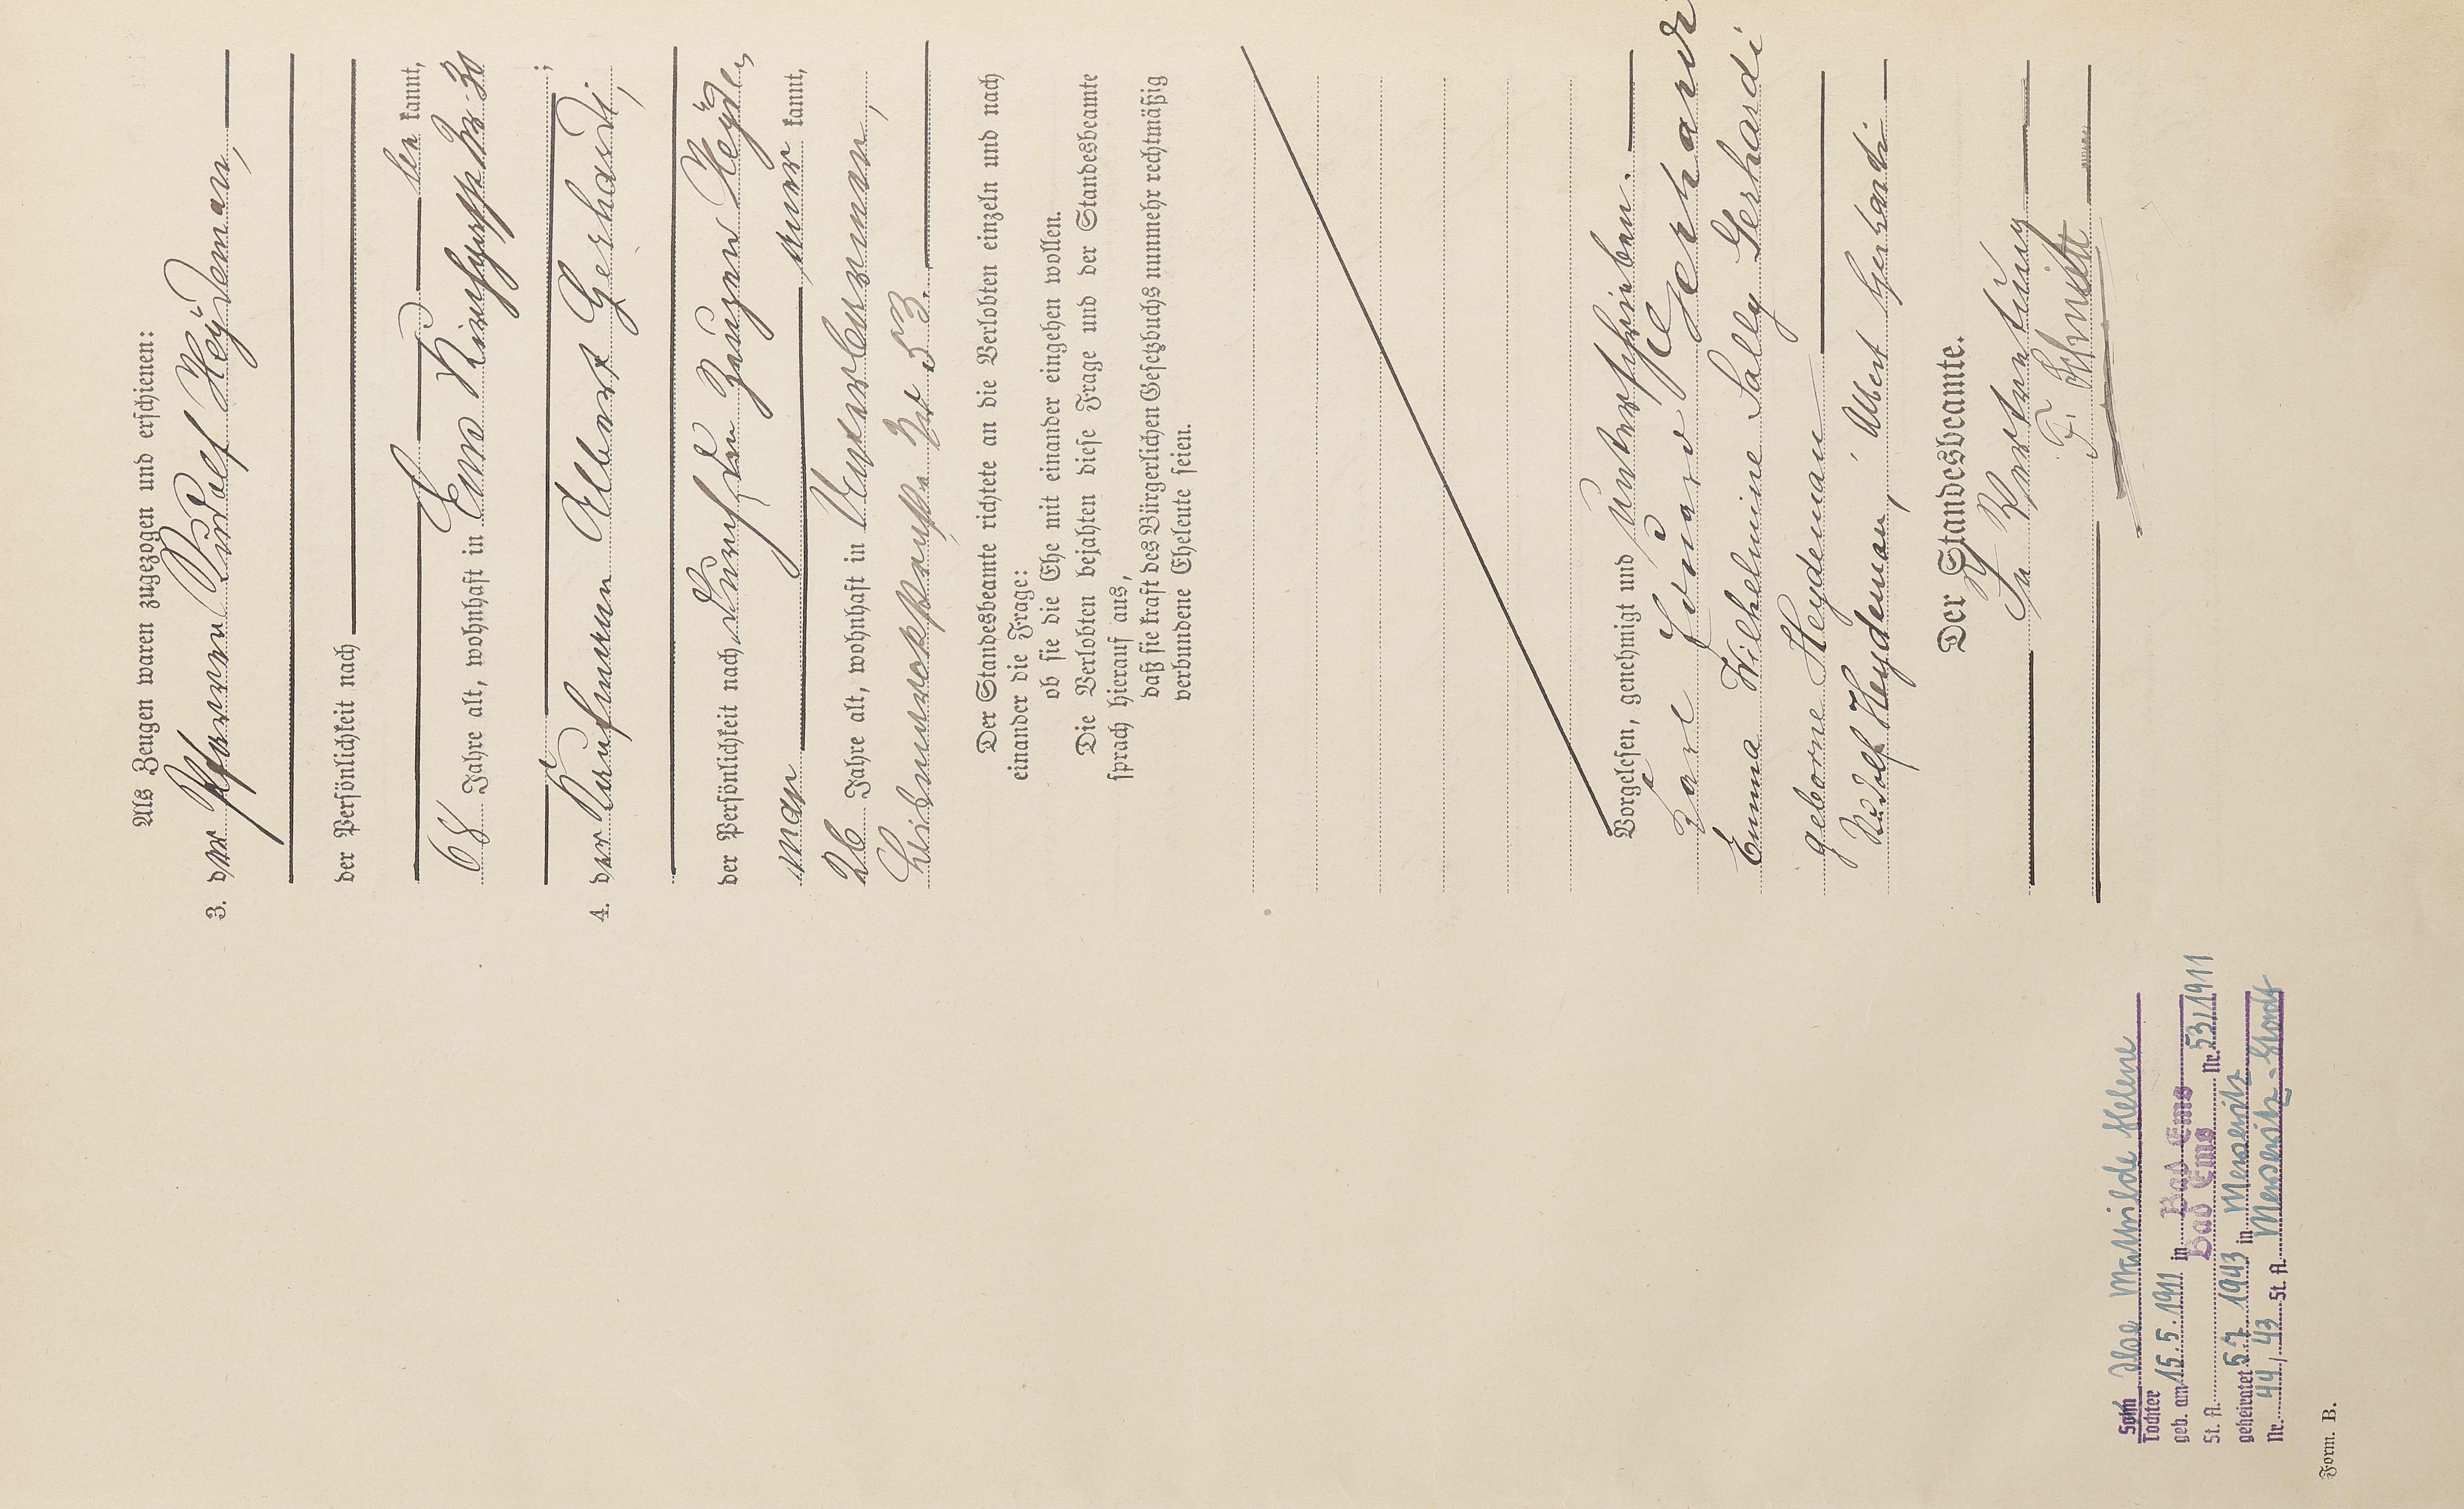 Als Zeugen waren zugezogen und erschienen:
3. der Pfarrer Rudolf Heydeman,
der Persönlichkeit nach
be kannt,
68 Jahre alt, wohnhaft in Ems
4. der Kaufmann Albert Gerhardi,
der Persönlichkeit nach durch den Zeugen Heyde-
man anerkannt,
26 Jahre alt, wohnhaft in
No 53.
Der Standesbeamte richtete an die Verlobten einzeln und nach
einander die Frage:
ob sie die Ehe mit einander eingehen wollen.
Die Verlobten bejahten diese Frage und der Standesbeamte
sprach hierauf aus,
daß sie kraft des Bürgerlichen Gesetzbuchs nunmehr rechtmäßig
verbundene Eheleute seien.
Vorgelesen, genehmigt und unterschrieben.
Carl Eduard Gerhardi
Emma Wilhelmine Sally Gerhardi
geborne Heydeman
Rudolf Heydeman, Albert Gerhardi
Der Standesbeamte.
In Vertretung
F. Schmitt
Sohn Ilse Mathilde Helene
Tochter
geb. am 15. 5. 1911 in Bad Ems
St. A. Bad Ems Nr. 53/1911
geheiratet 5.7. 1943 in Meseritz
Nr. 44/43 St. A. Meseritz-Stadt
Form. B.